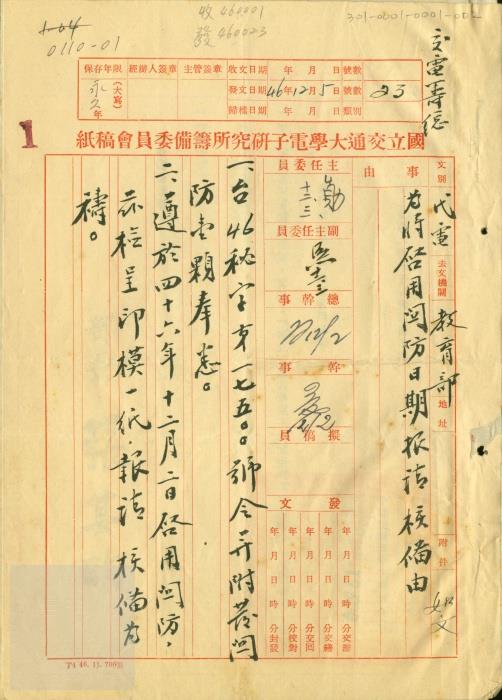 收460001
發460023
301-0001-0001-001
1-04
0110-01
保存年限 經辦人簽章 主管簽章 收文日期 年 月 日 號數
永久年 (大寫) 發文日期 46年12月5日 號數 23
歸檔日期 年 月 日 類別
交電壽總
1
國立交通大學電子研究所籌備委員會稿紙
文別 代電 去文機關 教育部 地址 附件 如文
事由 為將啓用關防日期報請核備由
主任委員
副主任委員
總幹事
幹事
撰稿員
發文
年月日時分交辦
年月日時分交繕
年月日時分交回
年月日時分校對
年月日時分封發
一、台46秘字第一七五〇〇號令并附發關
防壹顆奉悉。
二、遵於四十六年十二月二日啓用關防,
茲檢呈印模一紙,報請 核備為
禱。
T4 46. 11. 700張